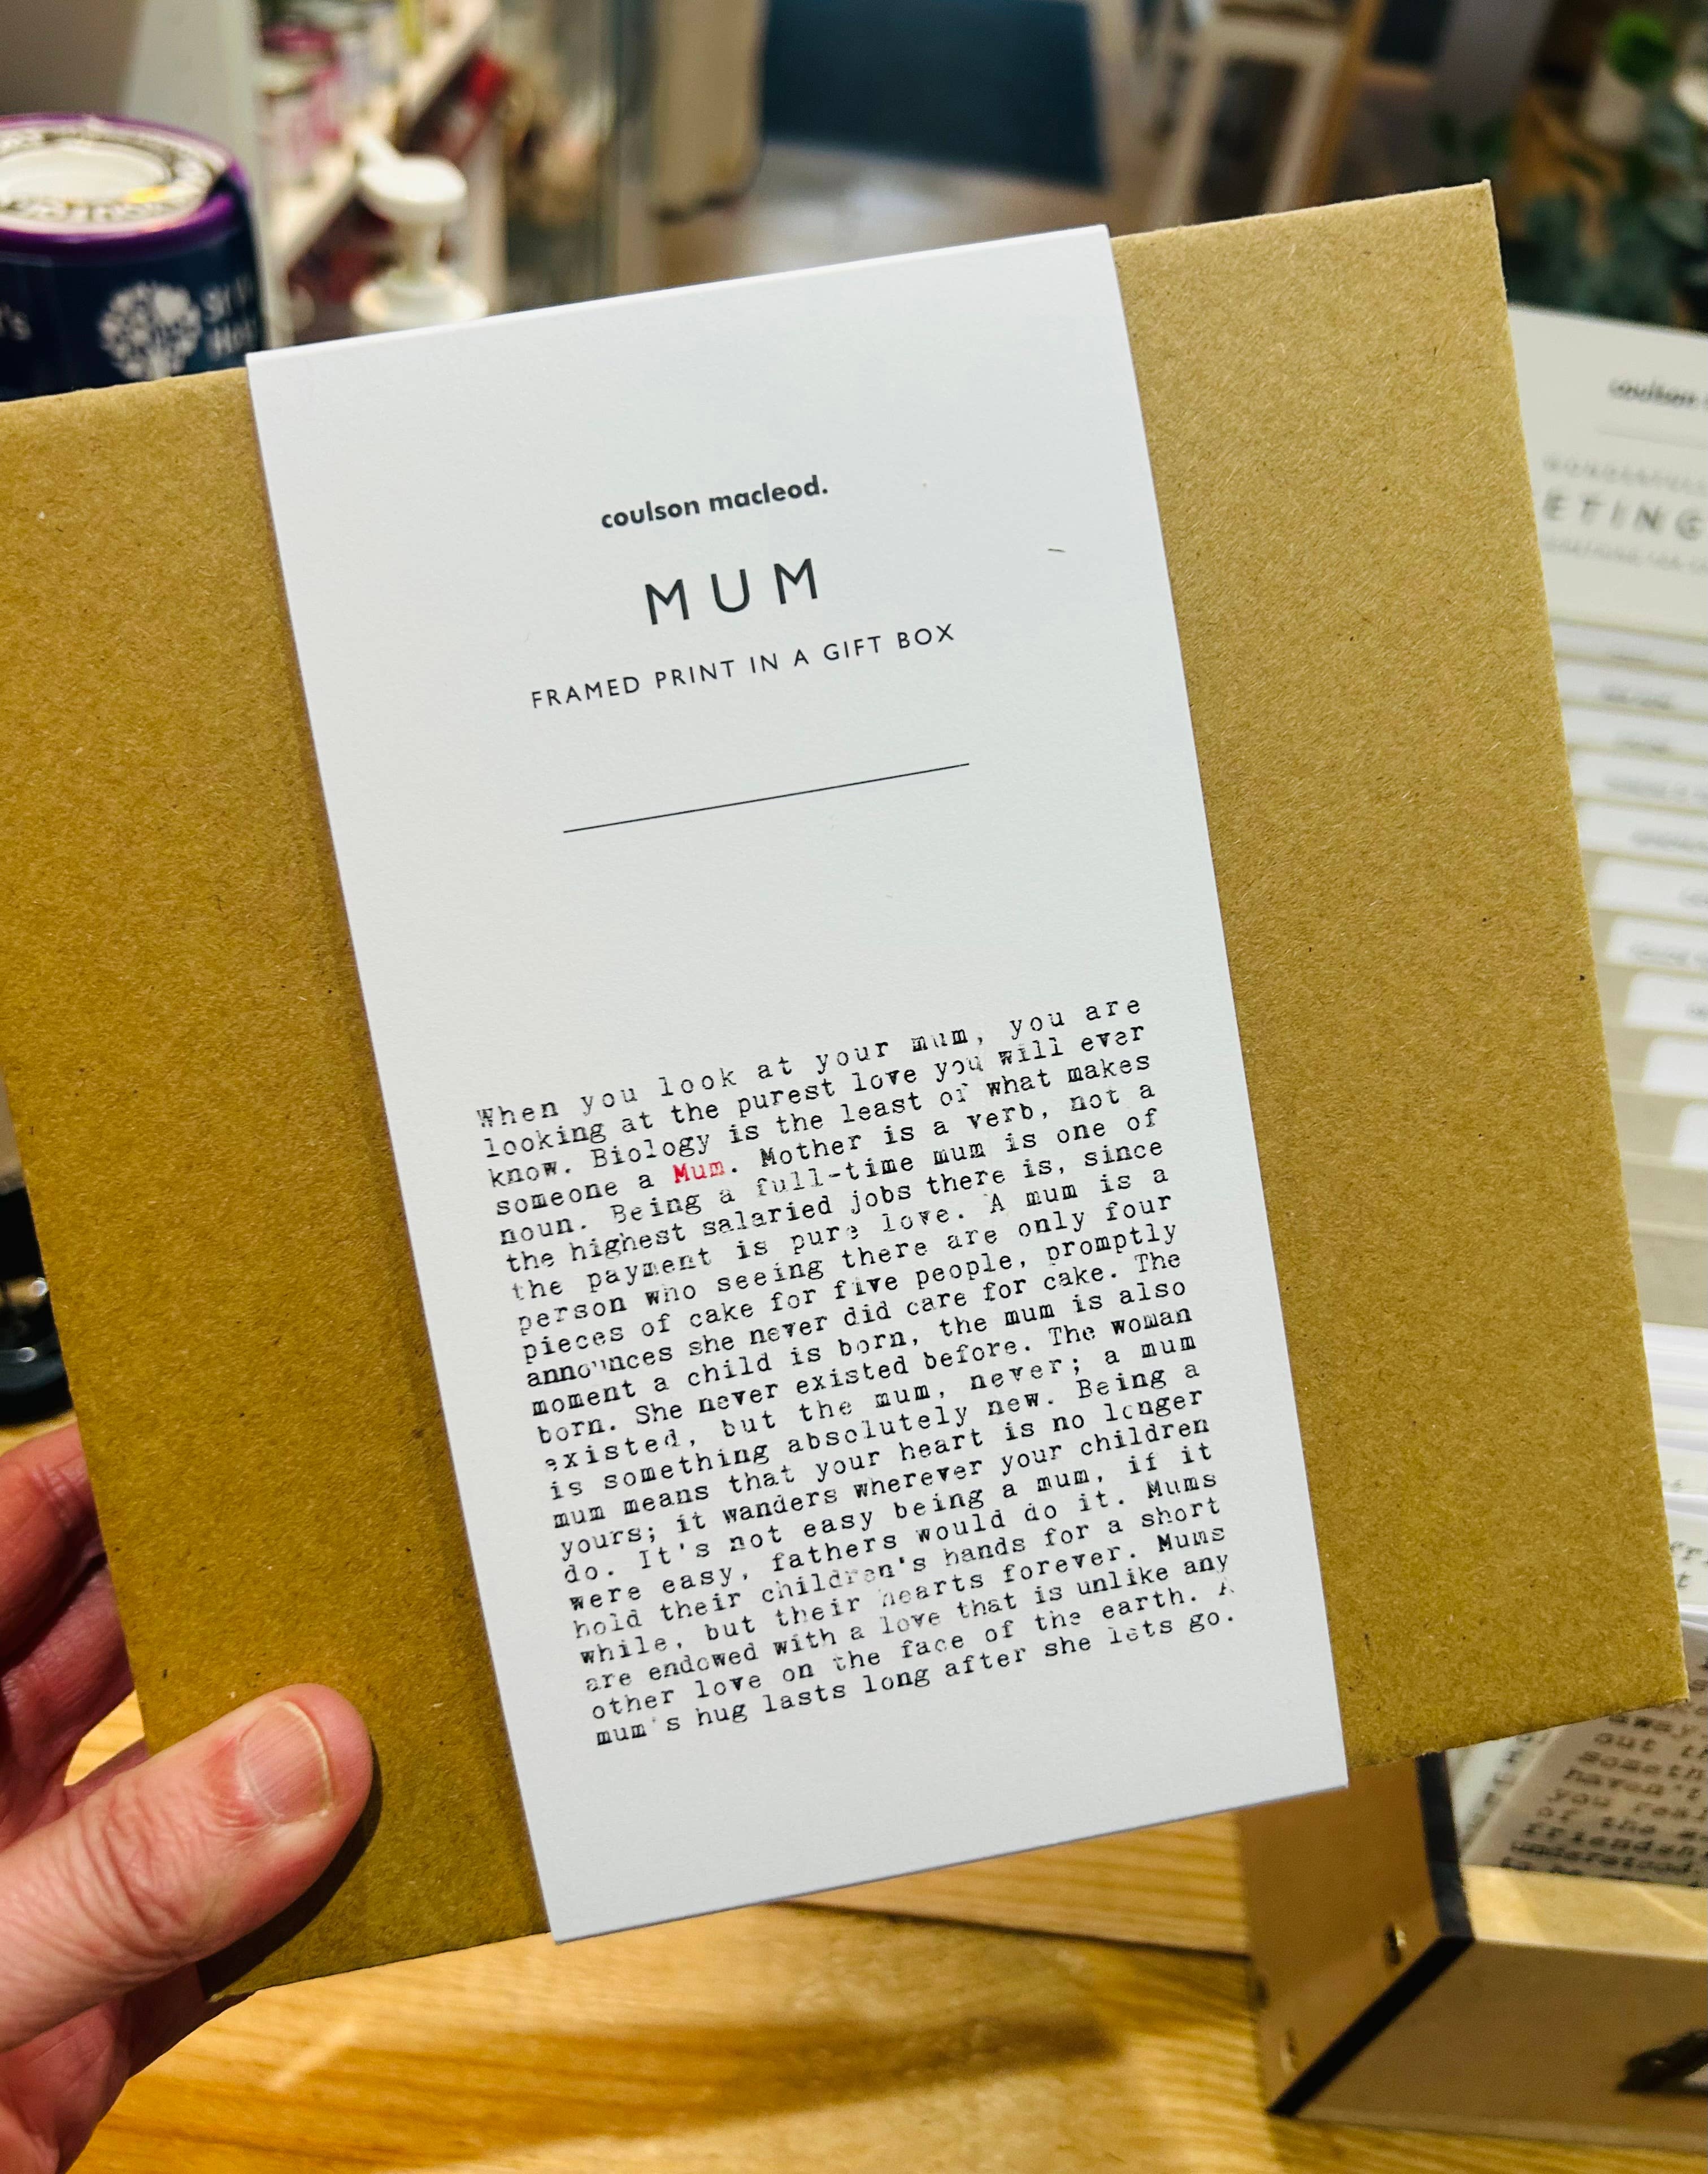 coulson macleod.
MUM
FRAMED PRINT IN A GIFT BOX
When you look at your mum, you are
looking at the purest love you will ever
know. Biology is the least of what makes
someone a Mum. Mother is a verb, not a
noun. Being a full-time mum is one of
the highest salaried jobs there is, since
the payment is pure love. A mum is a
person who seeing there are only four
pieces of cake for five people, promptly
announces she never did care for cake. The
moment a child is born, the mum is also
born. She never existed before. The woman
existed, but the mum, never; a mum
is something absolutely new. Being a
mum means that your heart is no longer
yours; it wanders wherever your children
do. It's not easy being a mum, if it
were easy, fathers would do it. Mums
hold their children's hands for a short
while, but their hearts forever. Mums
are endowed with a love that is unlike any
other love on the face of the earth. A
mum's hug lasts long after she lets go.
coulson
ETING
away
out th
someth
haven't
you real
of the
friendsh
understood